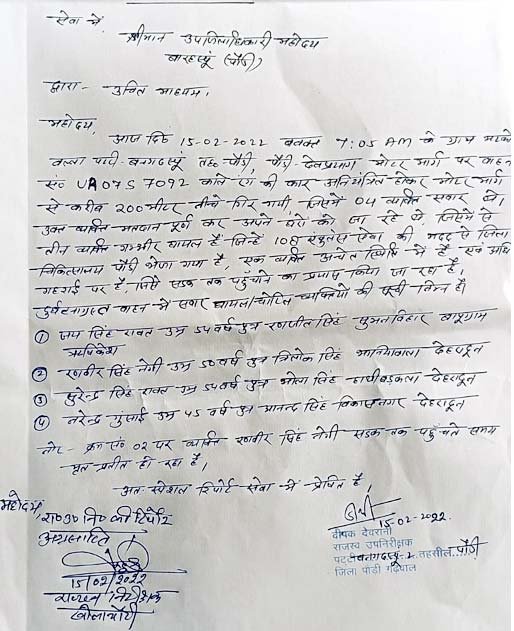 सेवा में,
श्रीमान उपजिलाधिकारी महोदय
बारहस्यूं (पौड़ी)
द्वारा - उचित माध्यम।
महोदय,
आज दि० 15-02-2022 बवक्त 7:05 AM के ग्राम
वल्ला पट्टी-बनगढस्यूं तह० पौड़ी, पौड़ी-देवप्रयाग मोटर मार्ग पर वाहन
सं० UA07S 7092 काले रंग की कार अनियंत्रित होकर मोटर मार्ग
से करीब 200 मीटर नीचे गिर गयी जिसमें 04 व्यक्ति सवार थे।
उक्त व्यक्ति मतदान पूर्ण कर अपने घरों को जा रहे थे जिसमें से
तीन व्यक्ति गम्भीर घायल हैं जिन्हें 108 एंबुलेंस सेवा की मदद से जिला
चिकित्सालय पौड़ी भेजा गया है, एक व्यक्ति अचेत स्थिति में है एवं अधिक
गहराई पर है, जिसे सड़क तक पहुंचाने का प्रयास किया जा रहा है।
दुर्घटनाग्रस्त वाहन में सवार घायल/चोटिल व्यक्तियों की सूची निम्न है।
① जय सिंह रावत उम्र 54 वर्ष पुत्र रणजीत सिंह सुमनविहार बापूग्राम
ऋषिकेश
② रणवीर सिंह नेगी उम्र 50 वर्ष पुत्र त्रिलोक सिंह भानियावाला देहरादून
③ सुरेन्द्र सिंह रावत उम्र 54 वर्ष पुत्र भोला सिंह हाथीबड़कला देहरादून
④ नरेन्द्र गुंसाई उम्र 45 वर्ष पुत्र आनन्द सिंह विकासनगर देहरादून
नोट - क्रम सं० 02 पर व्यक्ति रणवीर सिंह नेगी सड़क तक पहुंचते समय
मृत प्रतीत हो रहा है।
अतः स्पेशल रिपोर्ट सेवा में प्रेषित है।
महोदय, रा०उ०नि० की रिपोर्ट
अग्रसारित
15/02/2022
राजस्व निरीक्षक
15-02-2022.
दीपक देवरानी
राजस्व उपनिरीक्षक
पट्टी बनगढस्यूं-2 तहसील पौड़ी
जिला पौड़ी गढ़वाल